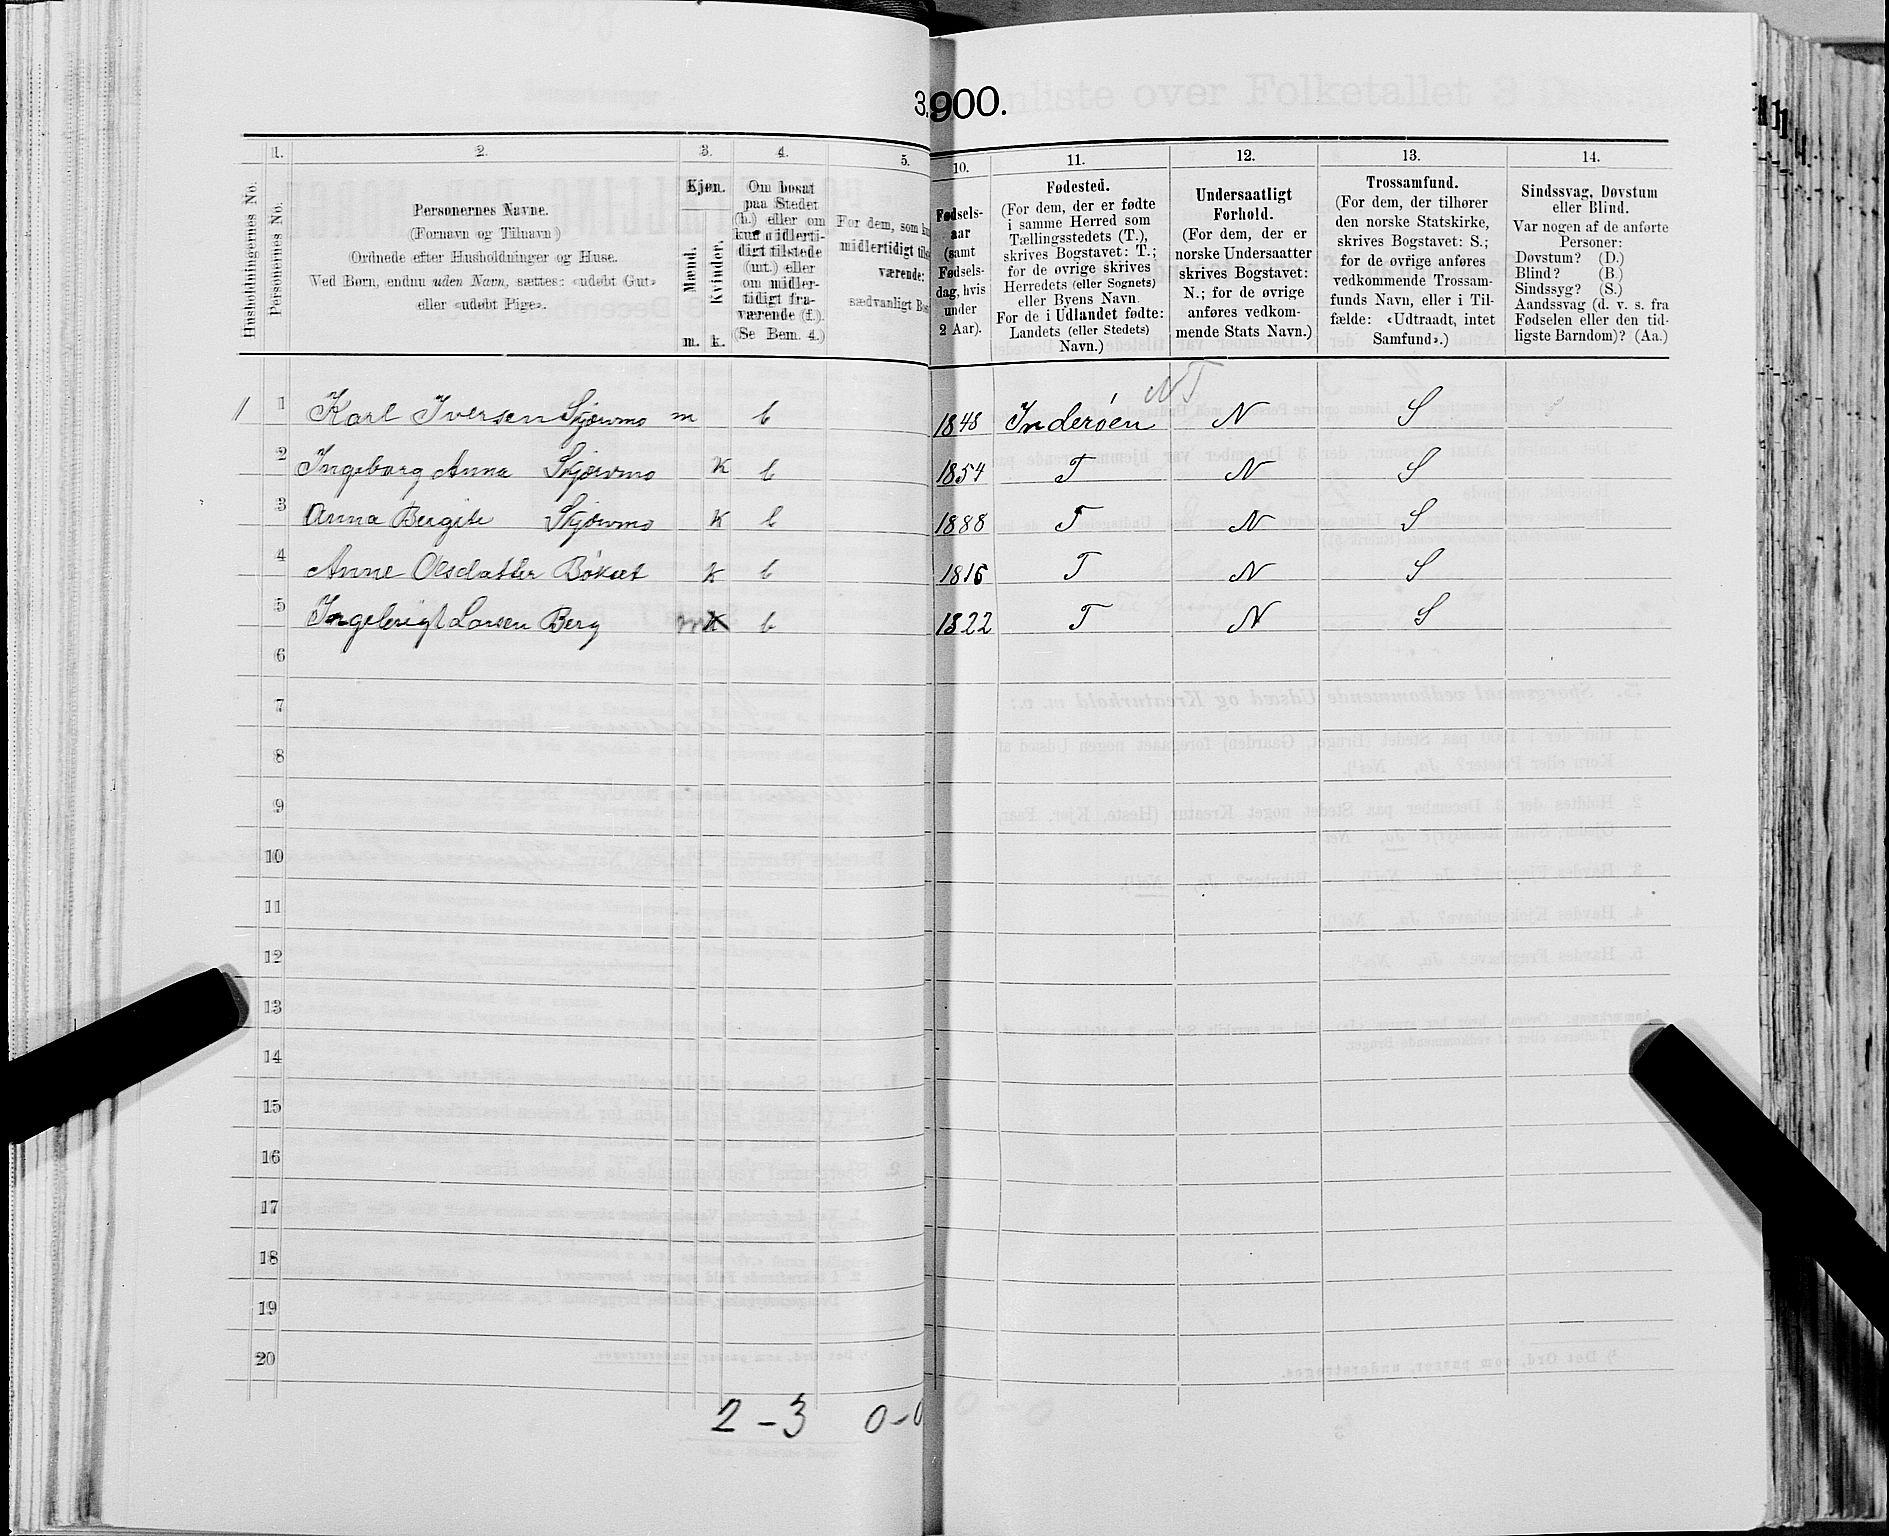 3. 900.
1. 2. 3. 4. 5. 10. 11. 12. 13. 14.
Husholdningernes No.
Personernes No.
Personernes Navne.
(Fornavn og Tilnavn)
Ordnede efter Husholdninger og Huse.
Ved Børn, endnu uden Navn, sættes: «udøbt Gut»
eller «udøbt Pige».
Kjøn.
Mænd.
Kvinder.
m. k.
Om bosat
paa Stedet
(b.) eller om
kun midlerti-
digt tilstede
(mt.) eller
om midler-
tidigt fra-
værende (f.).
(Se Bem. 4.)
For dem, som
midlertidigt
værende:
sædvanligt
Fødsels-
aar
(samt
Fødsels-
dag, hvis
under
2 Aar).
Fødested.
(For dem, der er fødte
i samme Herred som
Tællingsstedets (T.),
skrives Bogstavet: T.;
for de øvrige skrives
Herredets (eller Sognets)
eller Byens Navn.
For de i Udlandet fødte:
Landets (eller Stedets)
Navn.)
Undersaatligt
Forhold.
(For dem, der er
norske Undersaatter
skrives Bogstavet:
N.; for de øvrige
anføres vedkom-
mende Stats Navn.)
Trossamfund.
(For dem, der tilhører
den norske Statskirke,
skrives Bogstavet: S.;
for de øvrige anføres
vedkommende Trossam-
funds Navn, eller i Til-
fælde: «Udtraadt, intet
Samfund».)
Sindssvag, Døvstum
eller Blind.
Var nogen af de anførte
Personer:
Døvstum? (D.)
Blind? (B.)
Sindssyg? (S.)
Aandssvag (d. v. s. fra
Fødselen eller den tid-
ligste Barndom)? (Aa.)
NT
1 1 Karl Iversen Skjærvmo m b 1848 Inderøen N S
2 Ingeborg Anna Skjærvmo K b 1854 T N S
3 Anna Bergite Skjærvmo K b 1888 T N S
4 Anne Olsdatter Bökset K b 1816 T N S
5 Ingebrigt Larsen Berg m b 1822 T N S
6
7
8
9
10
11
12
13
14
15
16
17
18
19
20
2 - 3 0 - 0